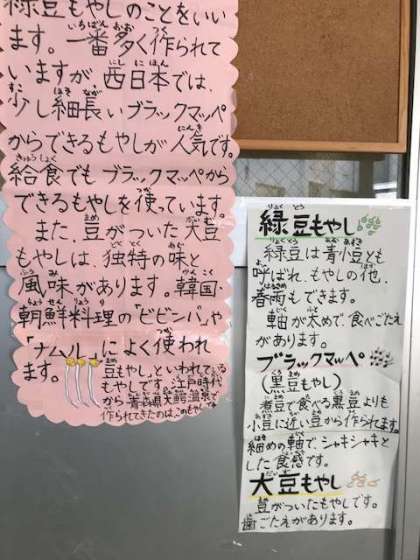 緑豆もやしのことをいい
ます。一番多く作られて
いますが西日本では、
少し細長いブラックマッペ
からできるもやしが人気です。
給食でもブラックマッペから
できるもやしを使っています。
また、豆がついた大豆
もやしは、独特の味と
風味があります。韓国・
朝鮮料理の"ビビンバ"や
「ナムル」によく使われ
ます。
豆もやし、といわれている
もやしです。江戸時代
から青森県大鰐温泉で
作られてきたのは、このもやし
緑豆もやし
緑豆は青小豆とも
呼ばれ、もやしの他、
春雨もできます。
軸が太めで、食べごたえ
があります。
ブラックマッペ
(黒豆もやし)
煮豆で食べる黒豆よりも
小豆に近い豆から作られてます。
細めの軸で、シャキシャキと
した食感です。
大豆もやし
豆がついたもやしです。
歯ごたえがあります。